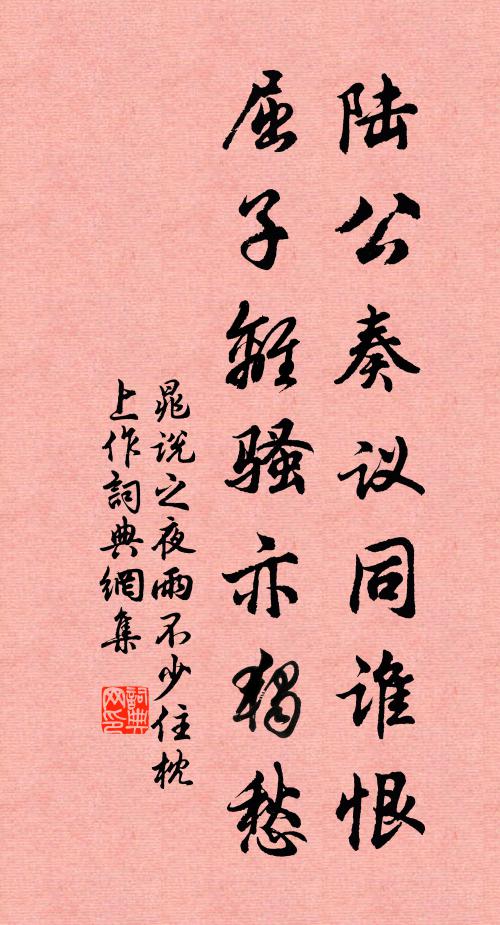 陆公奏议同谁恨
屈子離骚亦独愁
晁说之夜雨不少住枕
上作詞典網集
詞典網印